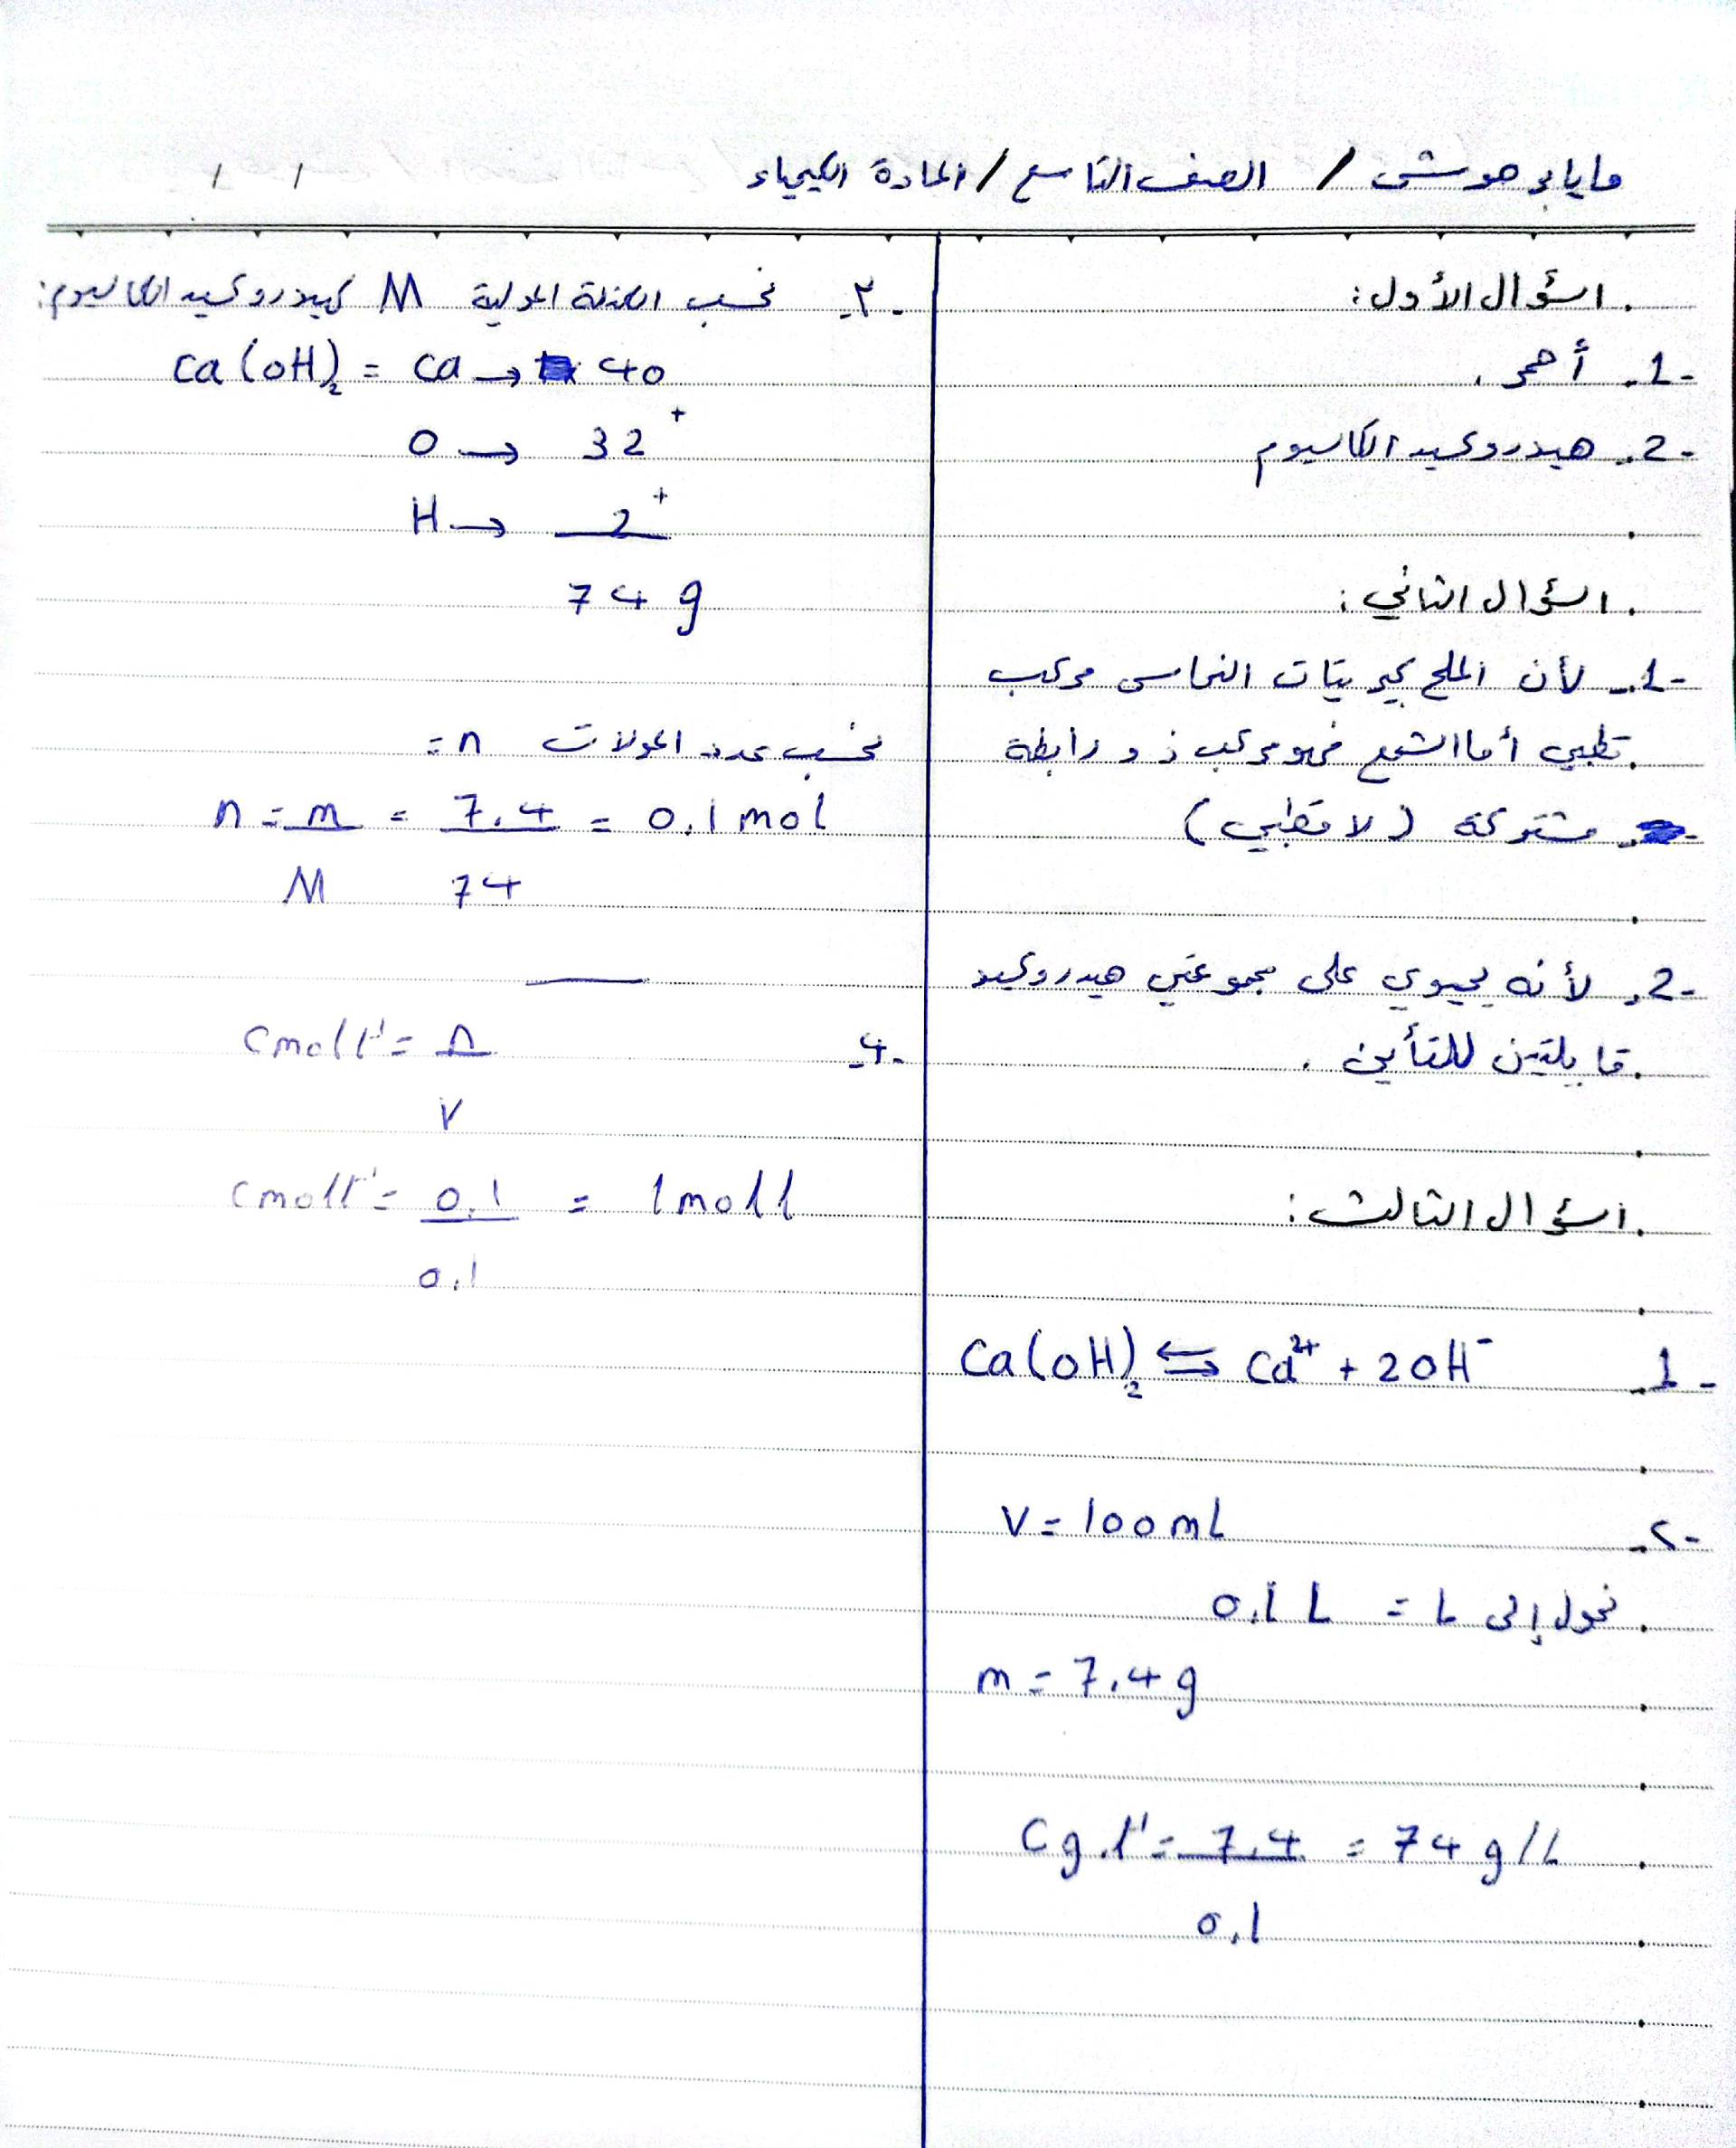 مايا بو حوش / الصف التاسع / المادة الكيمياء / /
السؤال الأول:
1- أحمر.
2- هيدروكسيد الكالسيوم
السؤال الثاني:
1- لأن الملح كبريتات النحاس مركب
قطبي أما الشمع فهو مركب ذو رابطة
مشتركة (لا قطبي)
2- لأنه يحوي على مجموعتي هيدروكسيد
قابلتين للتأين.
السؤال الثالث:
1- Ca(OH)₂ ⇆ Ca²⁺ + 2OH⁻
٢- V = 100 mL
نحول إلى L = 0.1 L
m = 7.4 g
Cg.l⁻¹ = 7.4 = 74 g/L
0.1
٣- نحسب الكتلة المولية M لهيدروكسيد الكالسيوم:
Ca(OH)₂ = Ca → 40
+
O → 32
+
H → 2
74 g
نحسب عدد المولات n =
n = m = 7.4 = 0.1 mol
M 74
4- Cmol l⁻¹ = n
V
Cmol l⁻¹ = 0.1 = 1 mol l
0.1